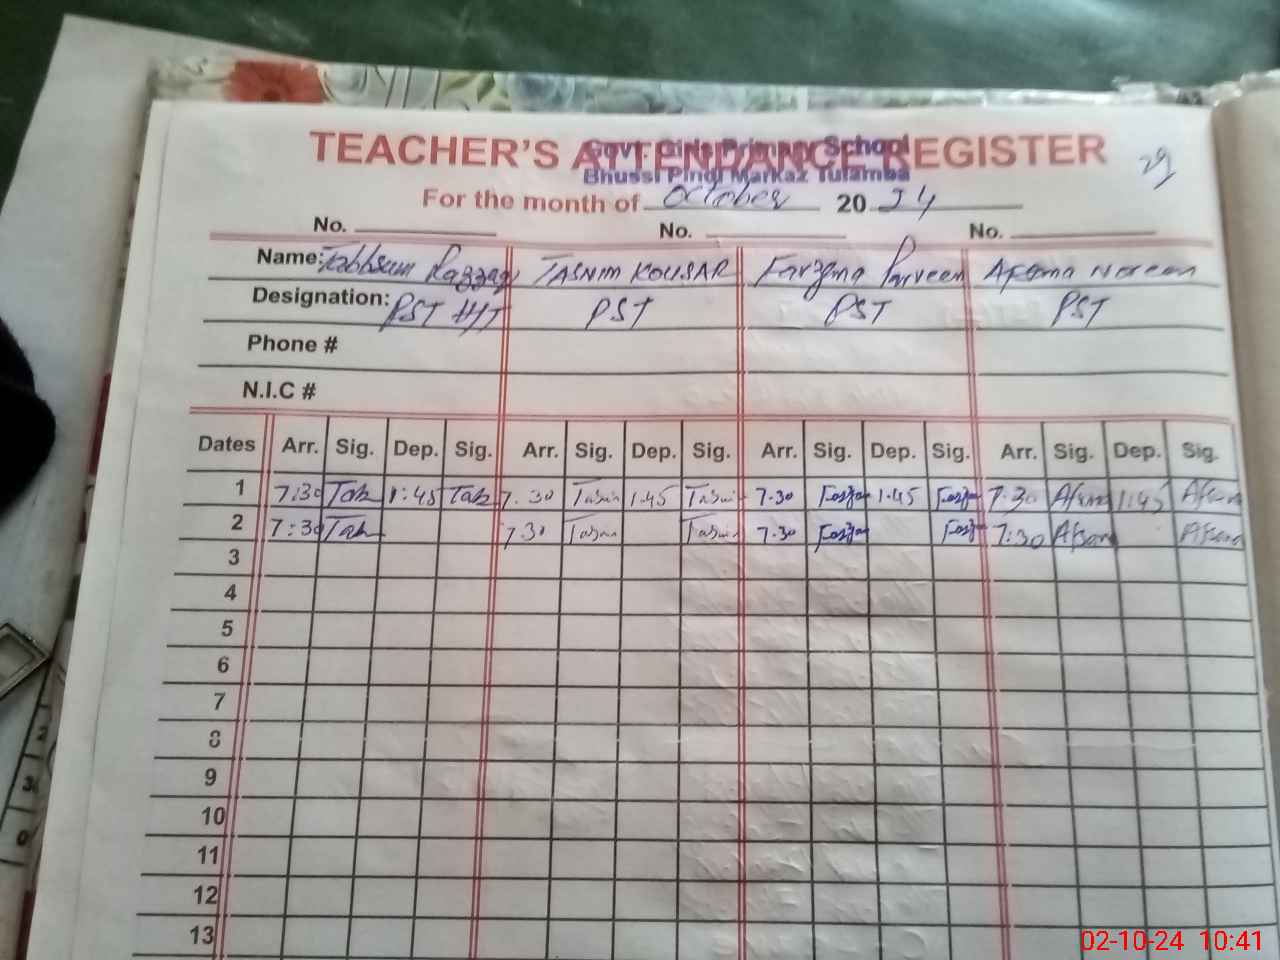 TEACHER'S ATTENDANCE REGISTER
Govt. Girls Primary School
Bhussi Pindi Markaz Tulamba
29
For the month of October 2024
No. No. No.
Name: Tabbsum Razzaq TASNIM KOUSAR Farzana Parveen Afsana Noreen
Designation: PST H/T PST PST PST
Phone #
N.I.C #
Dates Arr. Sig. Dep. Sig. Arr. Sig. Dep. Sig. Arr. Sig. Dep. Sig. Arr. Sig. Dep. Sig.
1 7:30 Tab 1:45 Tab 7.30 Tasni 1.45 Tasni 7.30 Farza 1.45 Farza 7.30 Afsana 1:45 Afsana
2 7:30 Tab 7.30 Tasni Tasni 7.30 Farza Farza 7:30 Afsana Afsana
3
4
5
6
7
8
9
10
11
12
13
2
3
0
02-10-24 10:41